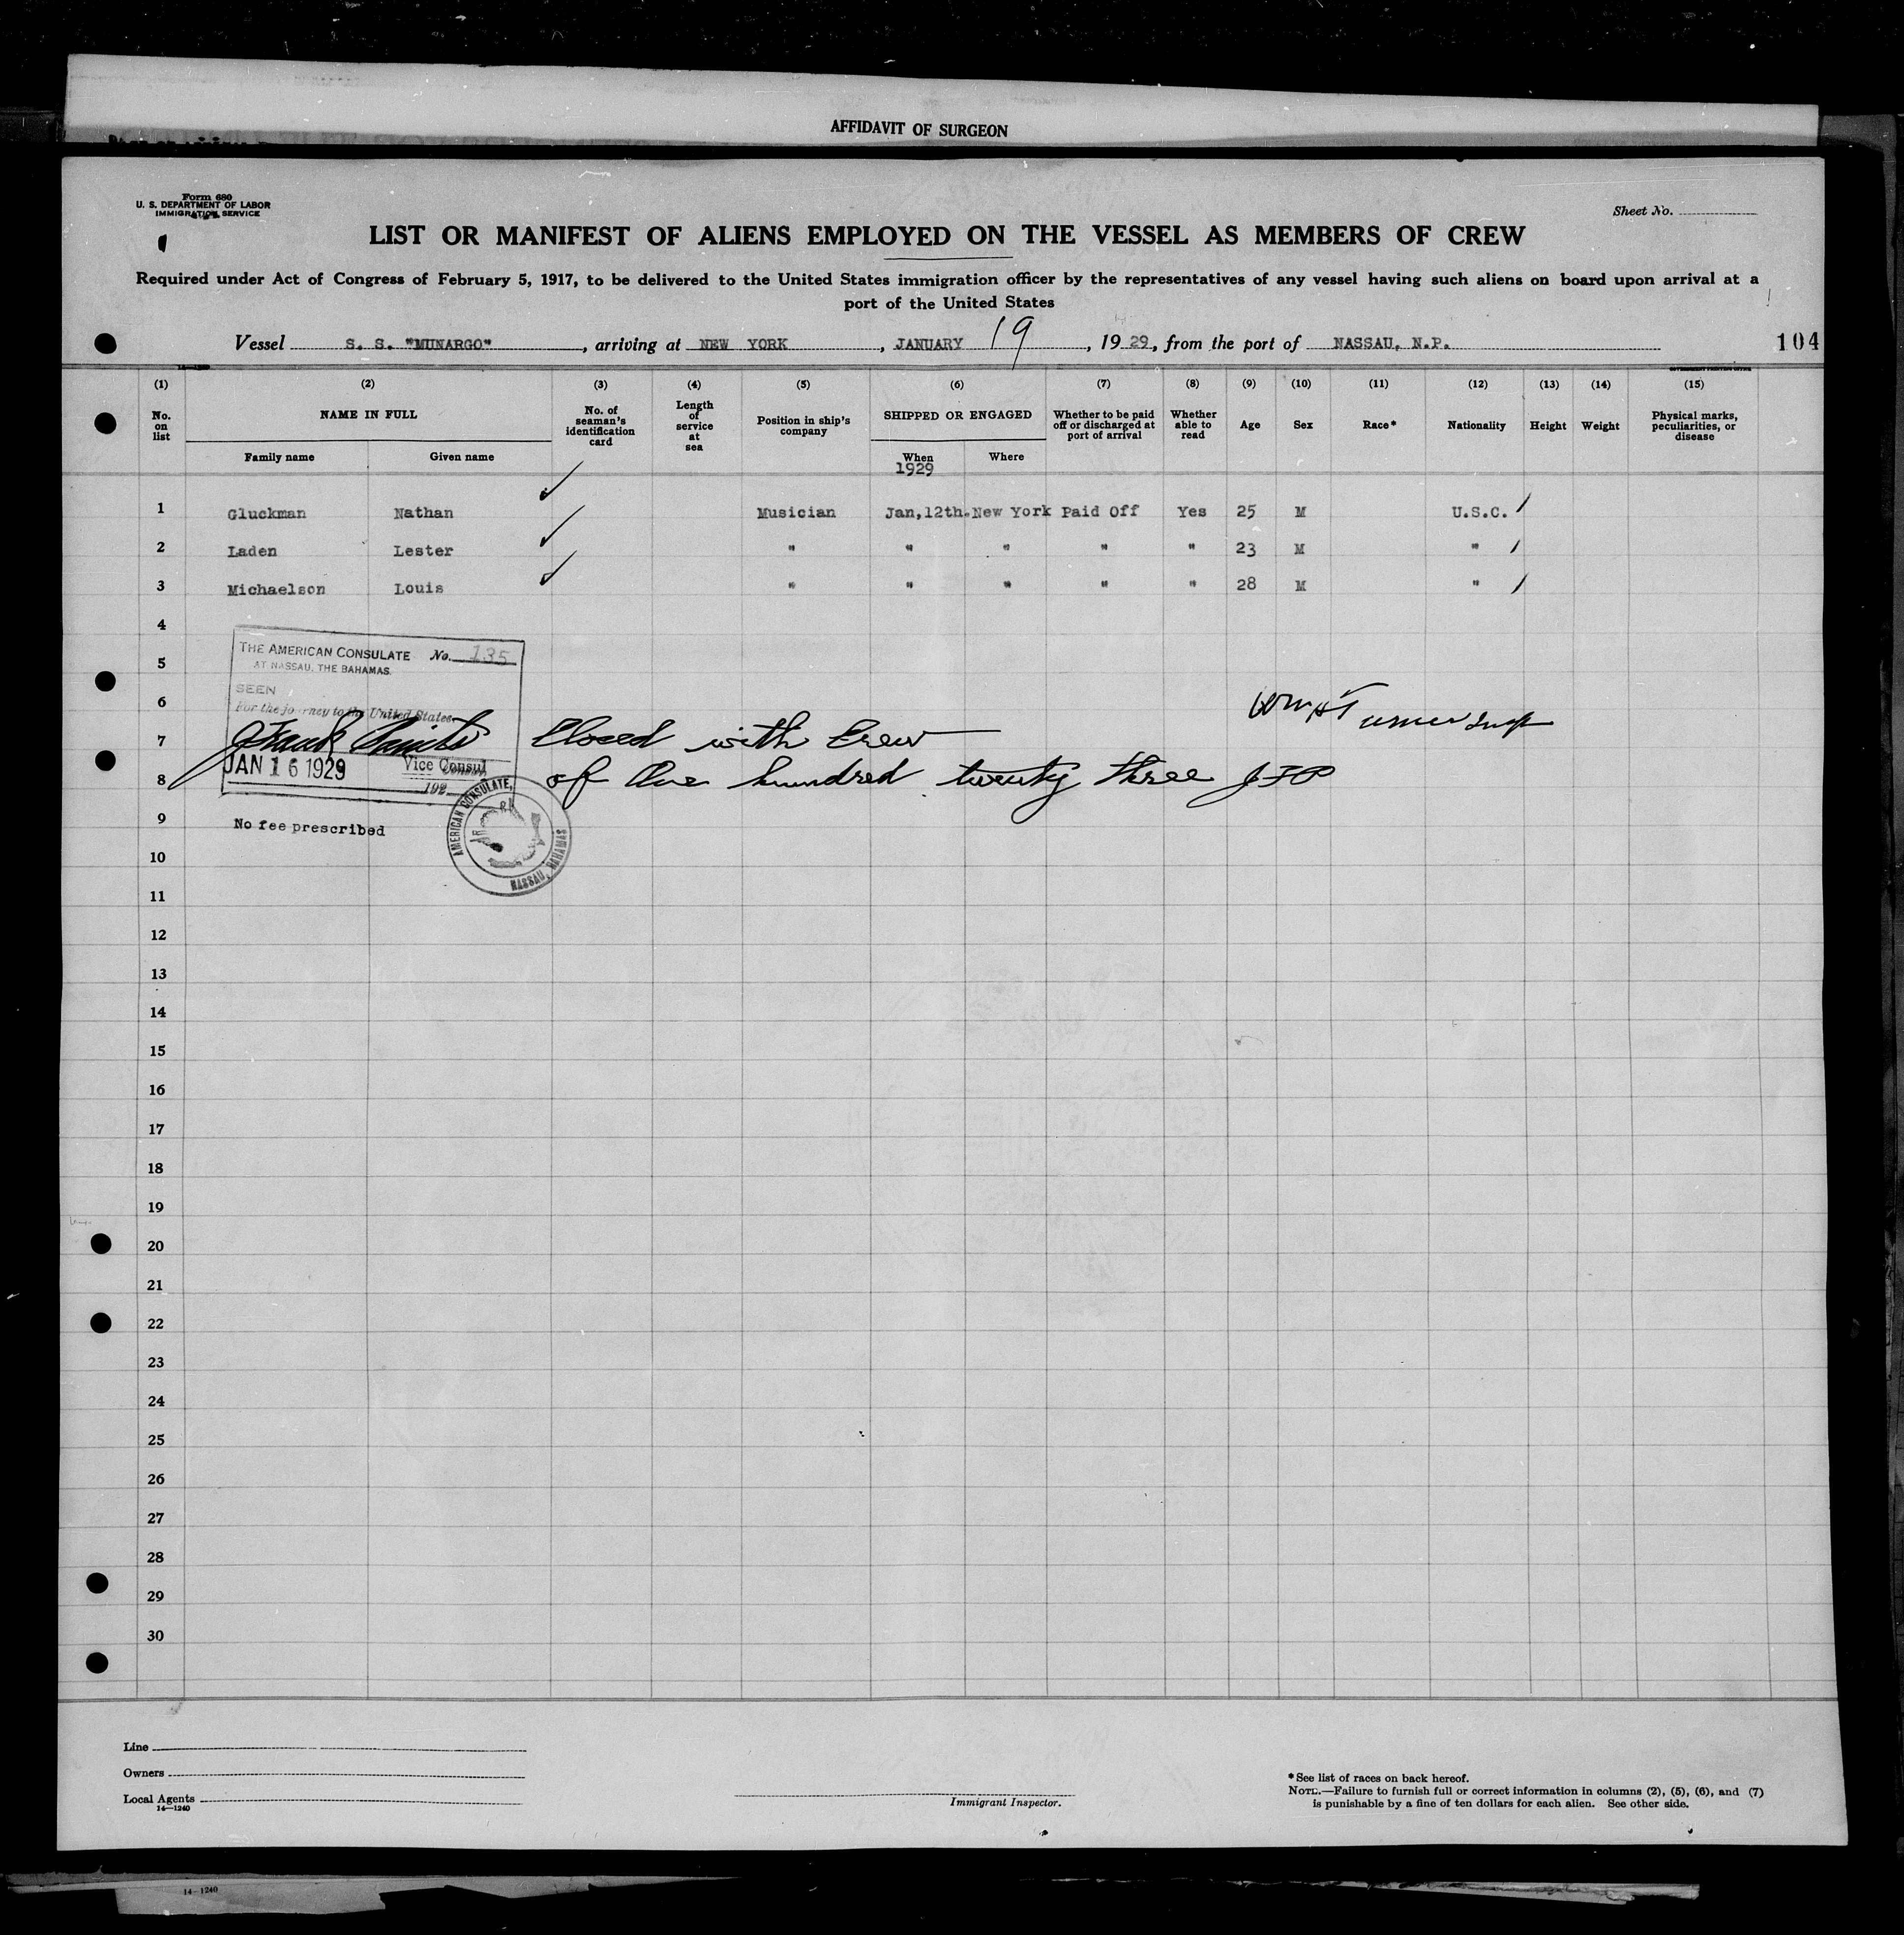 AFFIDAVIT OF SURGEON
Form 680
U. S. DEPARTMENT OF LABOR
IMMIGRATION SERVICE
Sheet No.
LIST OR MANIFEST OF ALIENS EMPLOYED ON THE VESSEL AS MEMBERS OF CREW
Required under Act of Congress of February 5, 1917, to be delivered to the United States immigration officer by the representatives of any vessel having such aliens on board upon arrival at a
port of the United States
Vessel S. S. "MUNARGO", arriving at NEW YORK, JANUARY 19, 1929, from the port of NASSAU, N.P.
104
(1) (2) (3) (4) (5) (6) (7) (8) (9) (10) (11) (12) (13) (14) (15)
No. on list NAME IN FULL No. of seaman's identification card Length of service at sea Position in ship's company SHIPPED OR ENGAGED Whether to be paid off or discharged at port of arrival Whether able to read Age Sex Race* Nationality Height Weight Physical marks, peculiarities, or disease
Family name Given name When Where
1929
1 Gluckman Nathan Musician Jan,12th. New York Paid Off Yes 25 M U.S.C.
2 Laden Lester " " " " " 23 M "
3 Michaelson Louis " " " " " 28 M "
4
THE AMERICAN CONSULATE No. 135
AT NASSAU, THE BAHAMAS.
5
SEEN
6
For the journey to the United States
7 Closed with Crew
JAN 16 1929 Vice Consul
8 of One hundred twenty three JFP
192
AMERICAN CONSULATE, NASSAU, BAHAMAS
9
No fee prescribed
10
11
12
13
14
15
16
17
18
19
20
21
22
23
24
25
26
27
28
29
30
Line
Owners
Local Agents
14—1240
Immigrant Inspector.
*See list of races on back hereof.
NOTE.—Failure to furnish full or correct information in columns (2), (5), (6), and (7)
is punishable by a fine of ten dollars for each alien. See other side.
14—1240